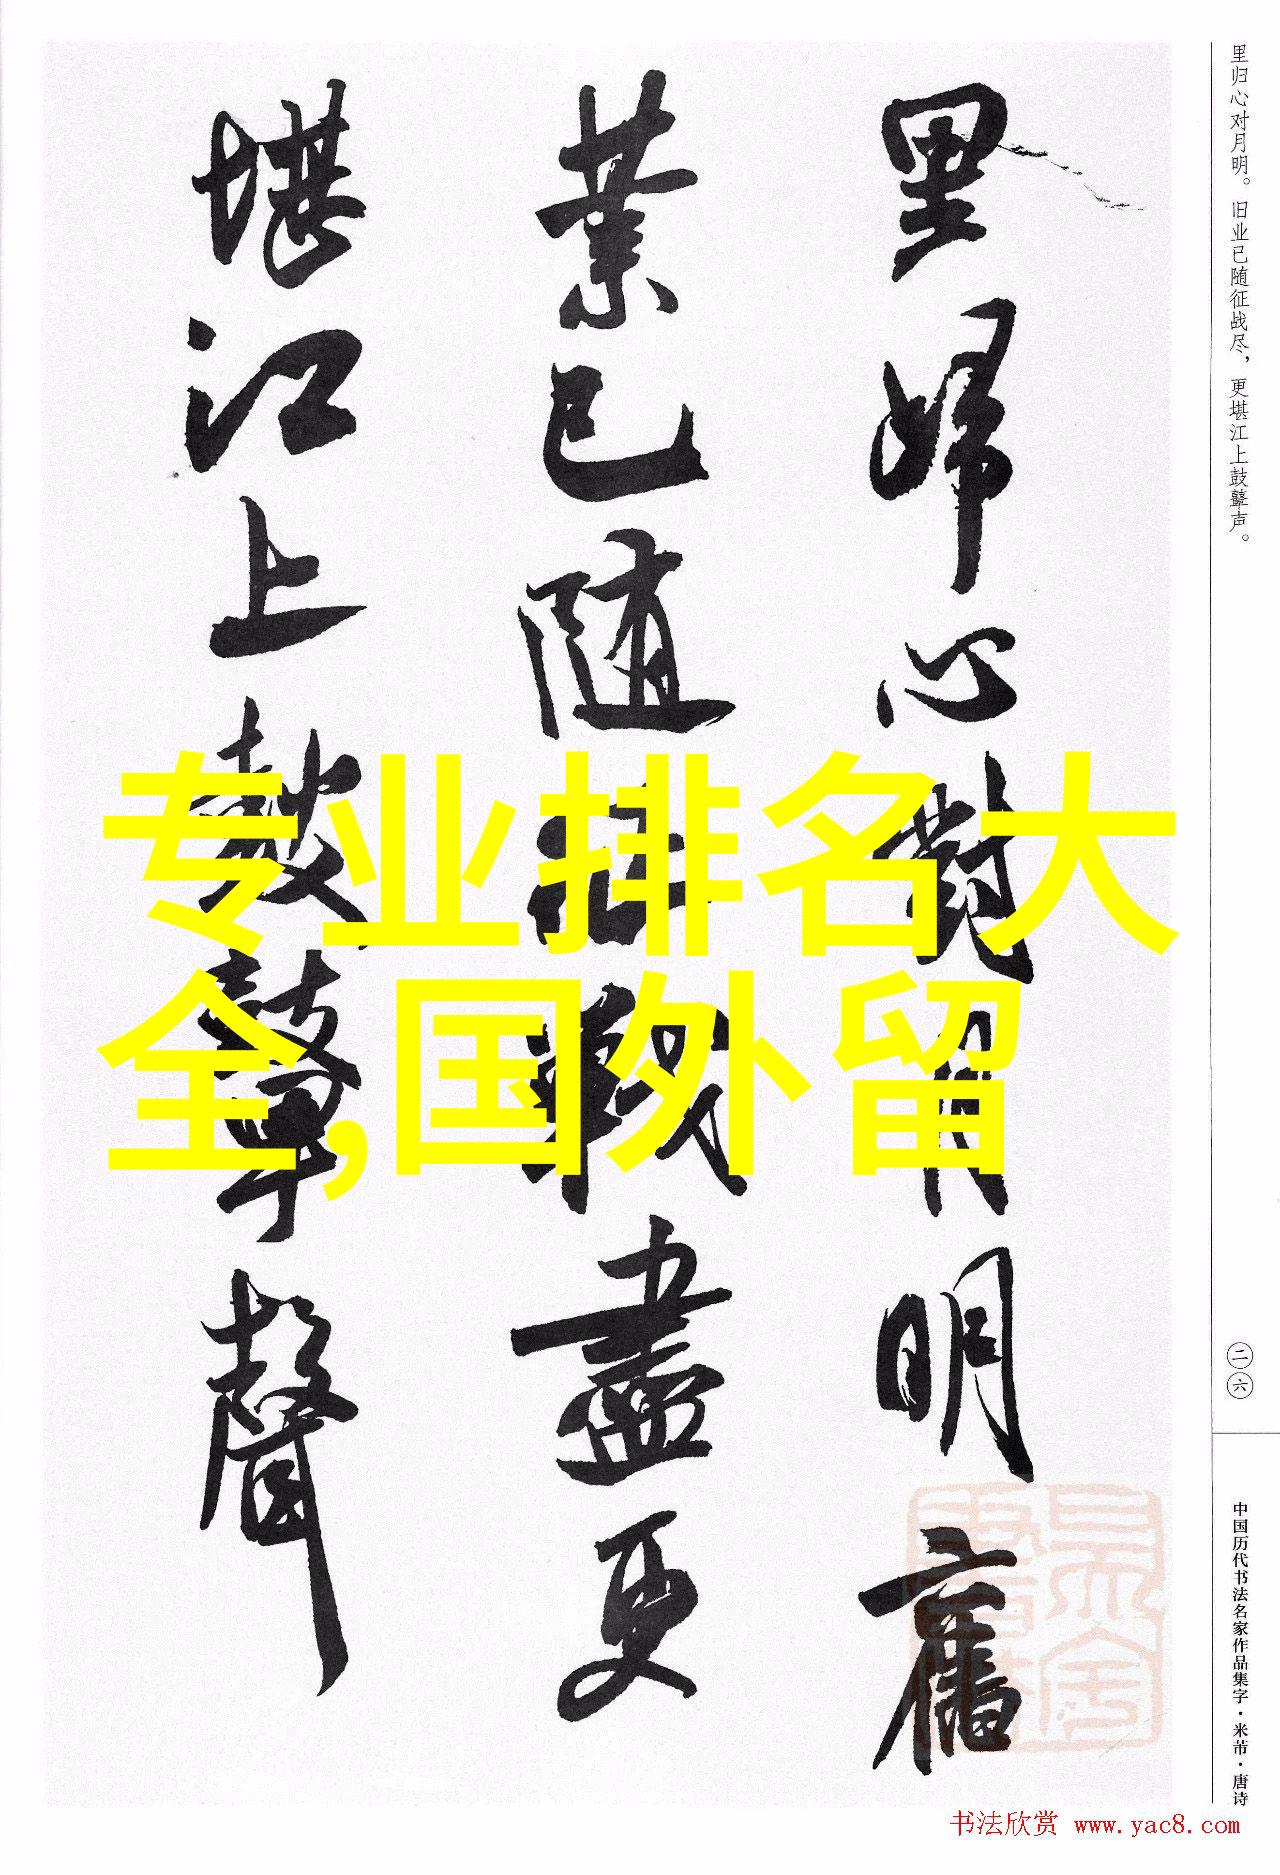 里归心对月明。旧业已随征战尽，更堪江上鼓鼙声。
二六
中国历代书法名家作品集字·米芾·唐诗
里歸心對月明舊
業已隨征戰盡更
堪江上鼓鼙聲
专业排名大
全,国外留
书法欣赏 www.yac8.com